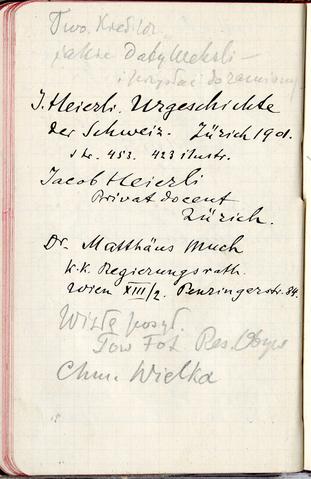 Two. Kredytow
jakie Daty Weksli –
i przysłać do zamiany
J. Heierli. Urgeschichte
der Schweiz. Zürich 1901.
str. 453. 423 ilustr.
Jacob Heierli
Privatdocent
Zürich.
Dr. Matthäus Much
k. k. Regierungsrath.
Wien XIII/2. Penzingerstr. 84.
posył.
Tow Fot
Chm. Wielka